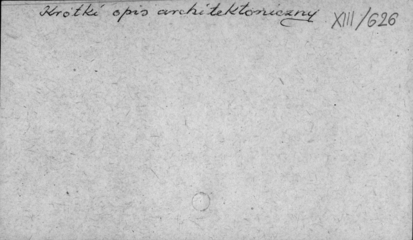 Krótki opis architektoniczny XIII/626